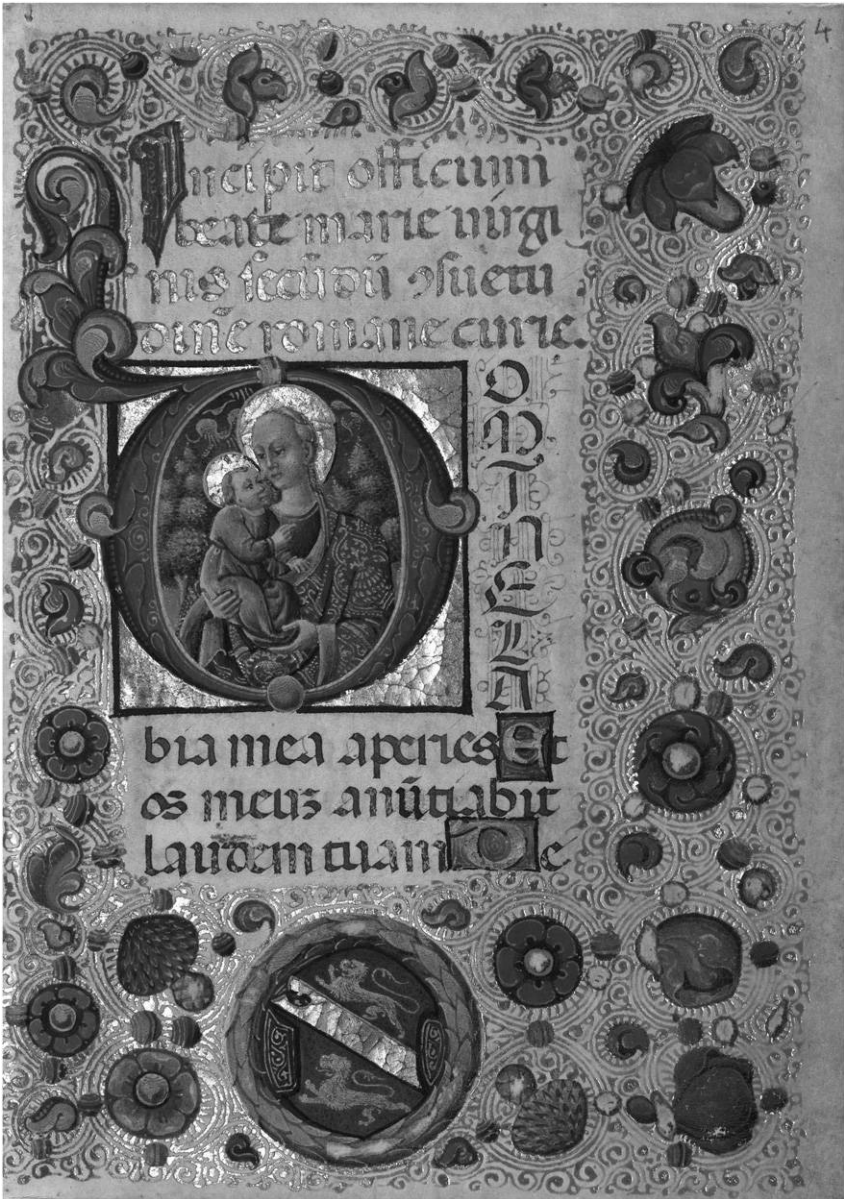 4
Incipit officium
beate marie uirgi
nis secūdū ꝯsuetu
dinē romane curie.
D
O
M
I
N
E
L
A
bia mea aperies Et
os meuz anūtiabit
laudem tuam De